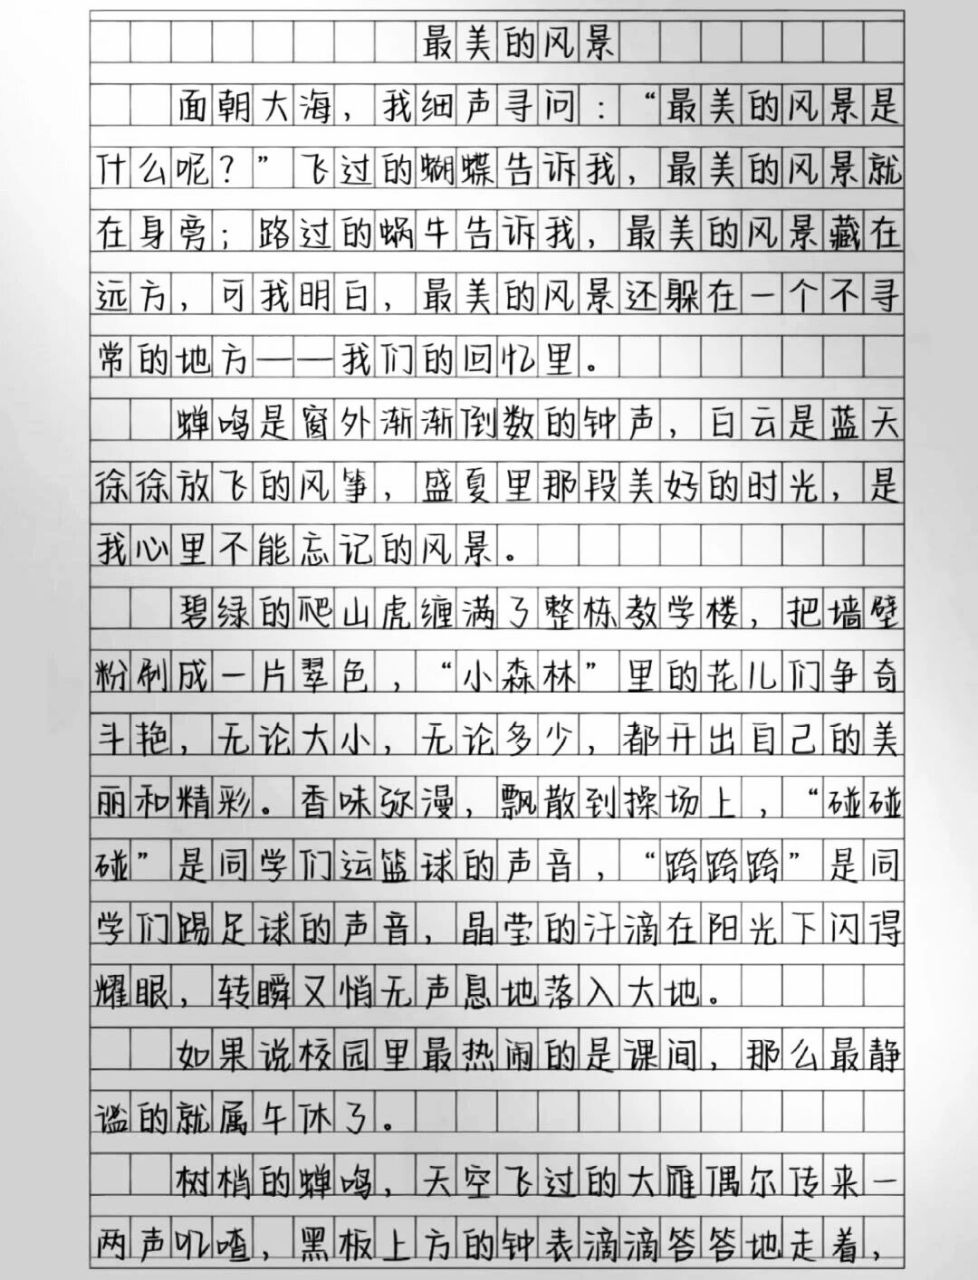 最美的风景
面朝大海，我细声寻问：“最美的风景是
什么呢？”飞过的蝴蝶告诉我，最美的风景就
在身旁；路过的蜗牛告诉我，最美的风景藏在
远方，可我明白，最美的风景还躲在一个不寻
常的地方——我们的回忆里。
蝉鸣是窗外渐渐倒数的钟声，白云是蓝天
徐徐放飞的风筝，盛夏里那段美好的时光，是
我心里不能忘记的风景。
碧绿的爬山虎缠满了整栋教学楼，把墙壁
粉刷成一片翠色，“小森林”里的花儿们争奇
斗艳，无论大小，无论多少，都开出自己的美
丽和精彩。香味弥漫，飘散到操场上，“碰碰
碰”是同学们运篮球的声音，“跨跨跨”是同
学们踢足球的声音，晶莹的汗滴在阳光下闪得
耀眼，转瞬又悄无声息地落入大地。
如果说校园里最热闹的是课间，那么最静
谧的就属午休了。
树梢的蝉鸣，天空飞过的大雁偶尔传来一
两声叽喳，黑板上方的钟表滴滴答答地走着，